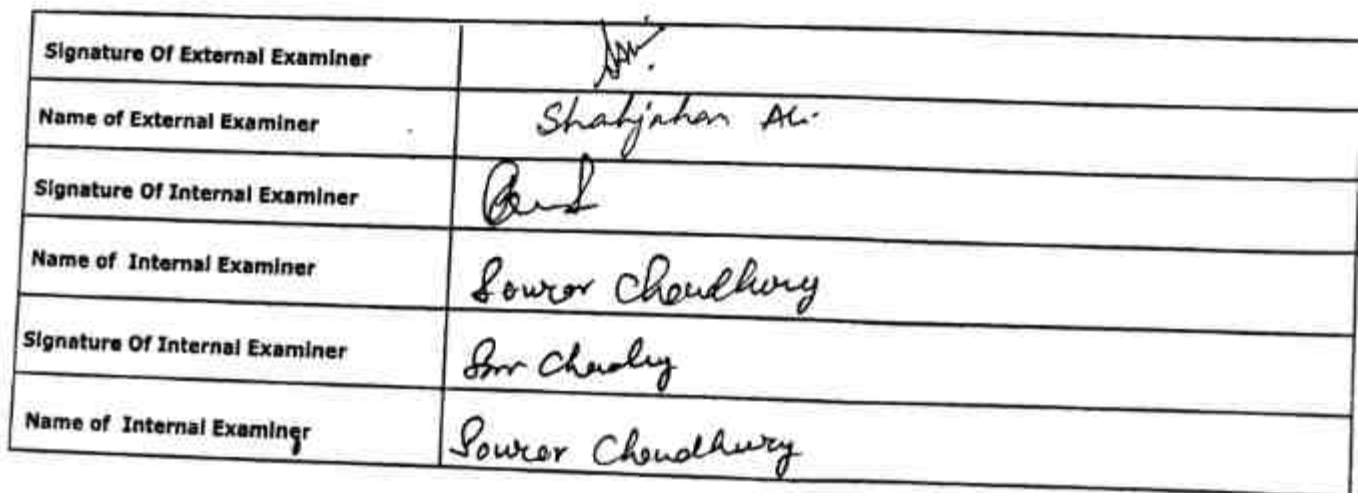 Signature Of External Examiner
Name of External Examiner Shahjahan Ali
Signature Of Internal Examiner
Name of Internal Examiner Sourav Choudhury
Signature Of Internal Examiner
Name of Internal Examiner Sourav Choudhury